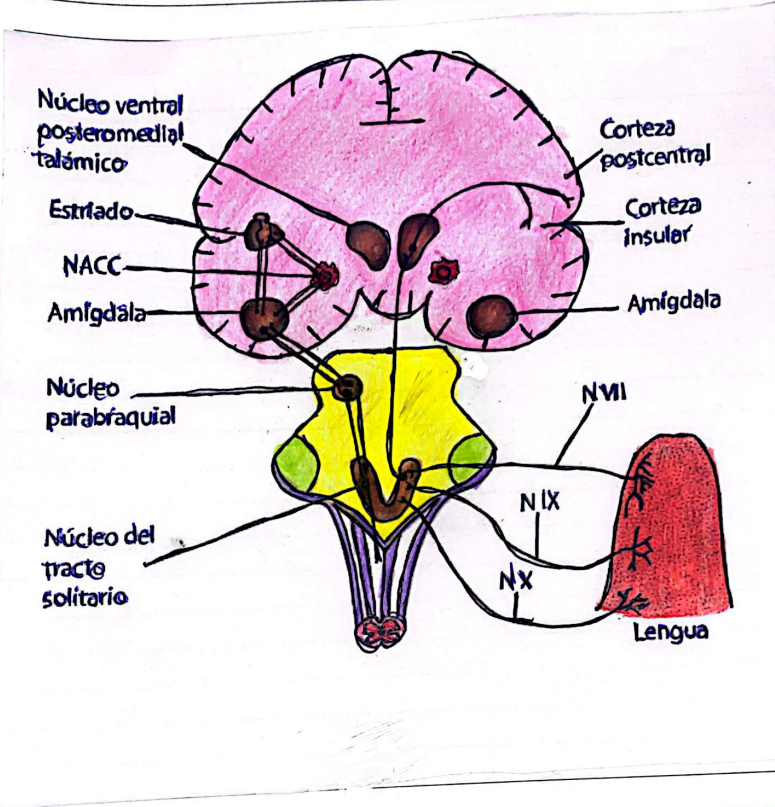 Núcleo ventral
posteromedial
talámico
Estriado
NACC
Amígdala
Núcleo
parabraquial
Núcleo del
tracto
solitario
Corteza
postcentral
Corteza
insular
Amígdala
NVII
NIX
NX
Lengua